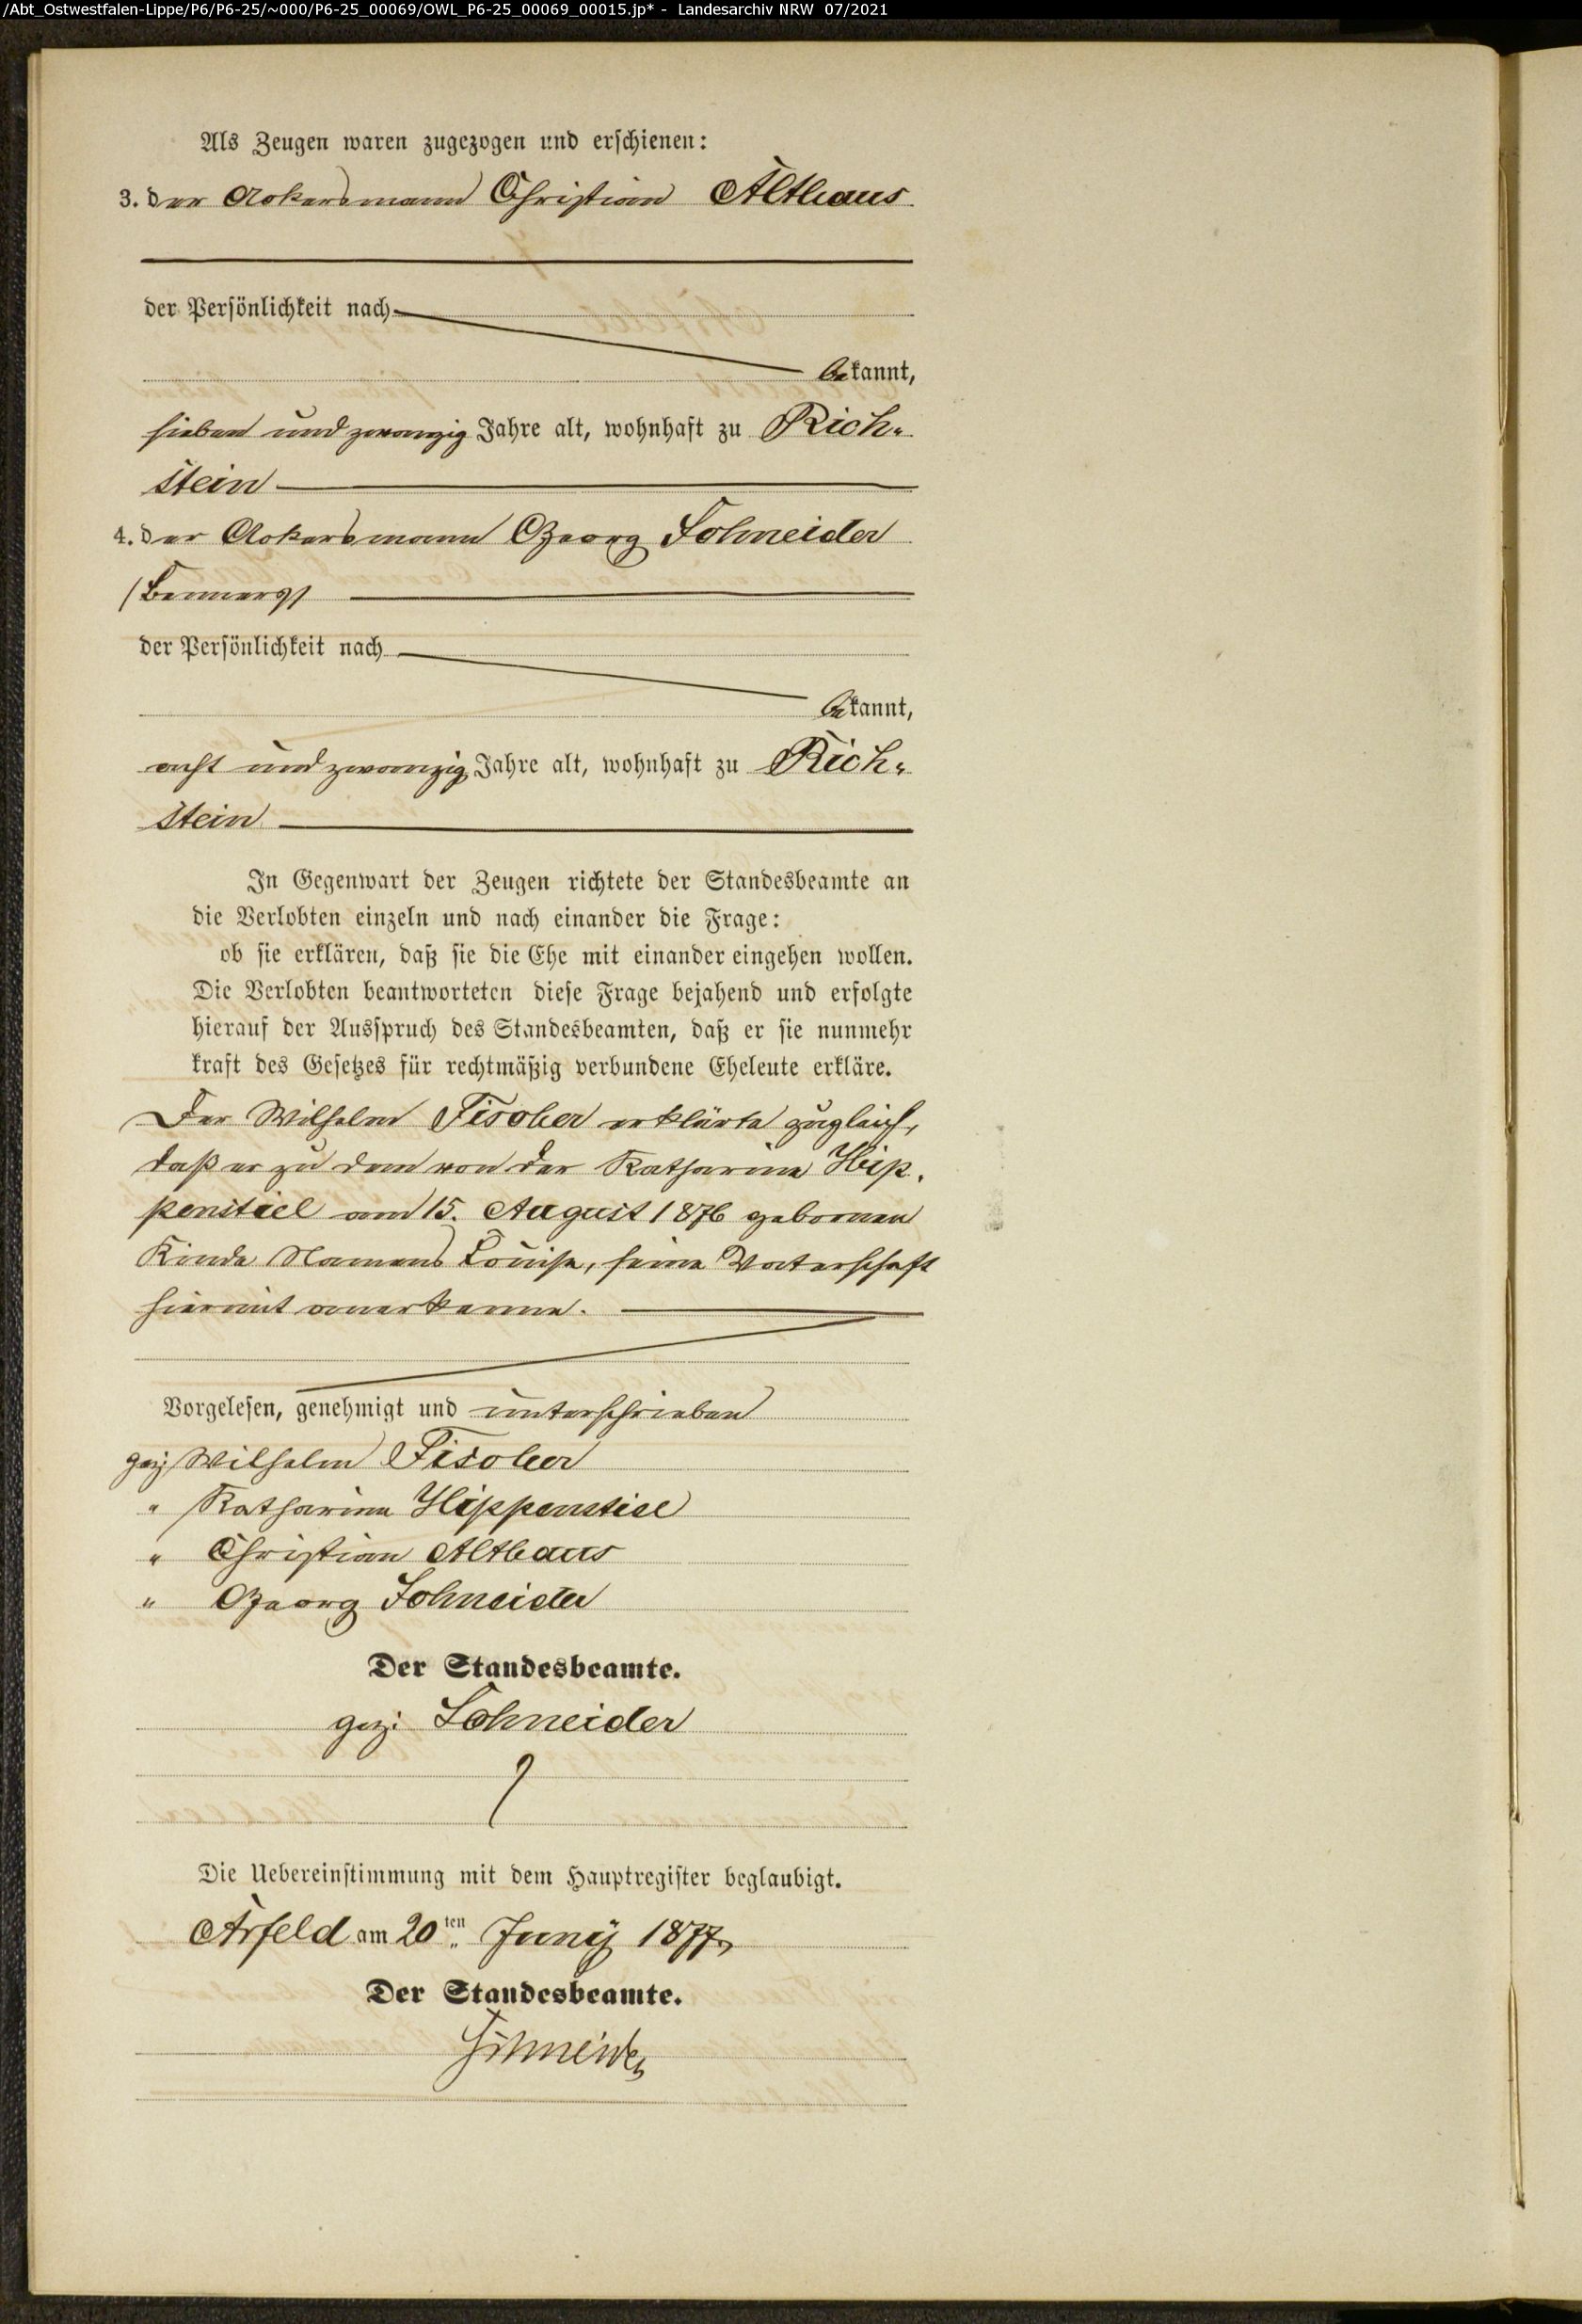 /Abt_Ostwestfalen-Lippe/P6/P6-25/~000/P6-25_00069/OWL_P6-25_00069_00015.jp* - Landesarchiv NRW 07/2021
Als Zeugen waren zugezogen und erschienen:
3. der Ackersmann Christian Althaus
der Persönlichkeit nach
bekannt,
sieben und zwanzig Jahre alt, wohnhaft zu Rich-
stein
4. der Ackersmann Georg Schneider
der Persönlichkeit nach
bekannt,
acht und zwanzig Jahre alt, wohnhaft zu Rich-
stein
In Gegenwart der Zeugen richtete der Standesbeamte an
die Verlobten einzeln und nach einander die Frage:
ob sie erklären, daß sie die Ehe mit einander eingehen wollen.
Die Verlobten beantworteten diese Frage bejahend und erfolgte
hierauf der Ausspruch des Standesbeamten, daß er sie nunmehr
kraft des Gesetzes für rechtmäßig verbundene Eheleute erkläre.
Der Wilhelm Fischer erklärte zugleich,
daß er zu dem von der Katharina Hip-
penstiel am 15. August 1876 gebornen
Kinde Namens Louise, seine Vaterschaft
hiermit anerkenne.
Vorgelesen, genehmigt und unterschrieben
gez: Wilhelm Fischer
" Katharina Hippenstiel
" Christian Althaus
" Georg Schneider
Der Standesbeamte.
gez: Schneider
Die Uebereinstimmung mit dem Hauptregister beglaubigt.
Arfeld am 20ten Juny 1877
Der Standesbeamte.
Schneider